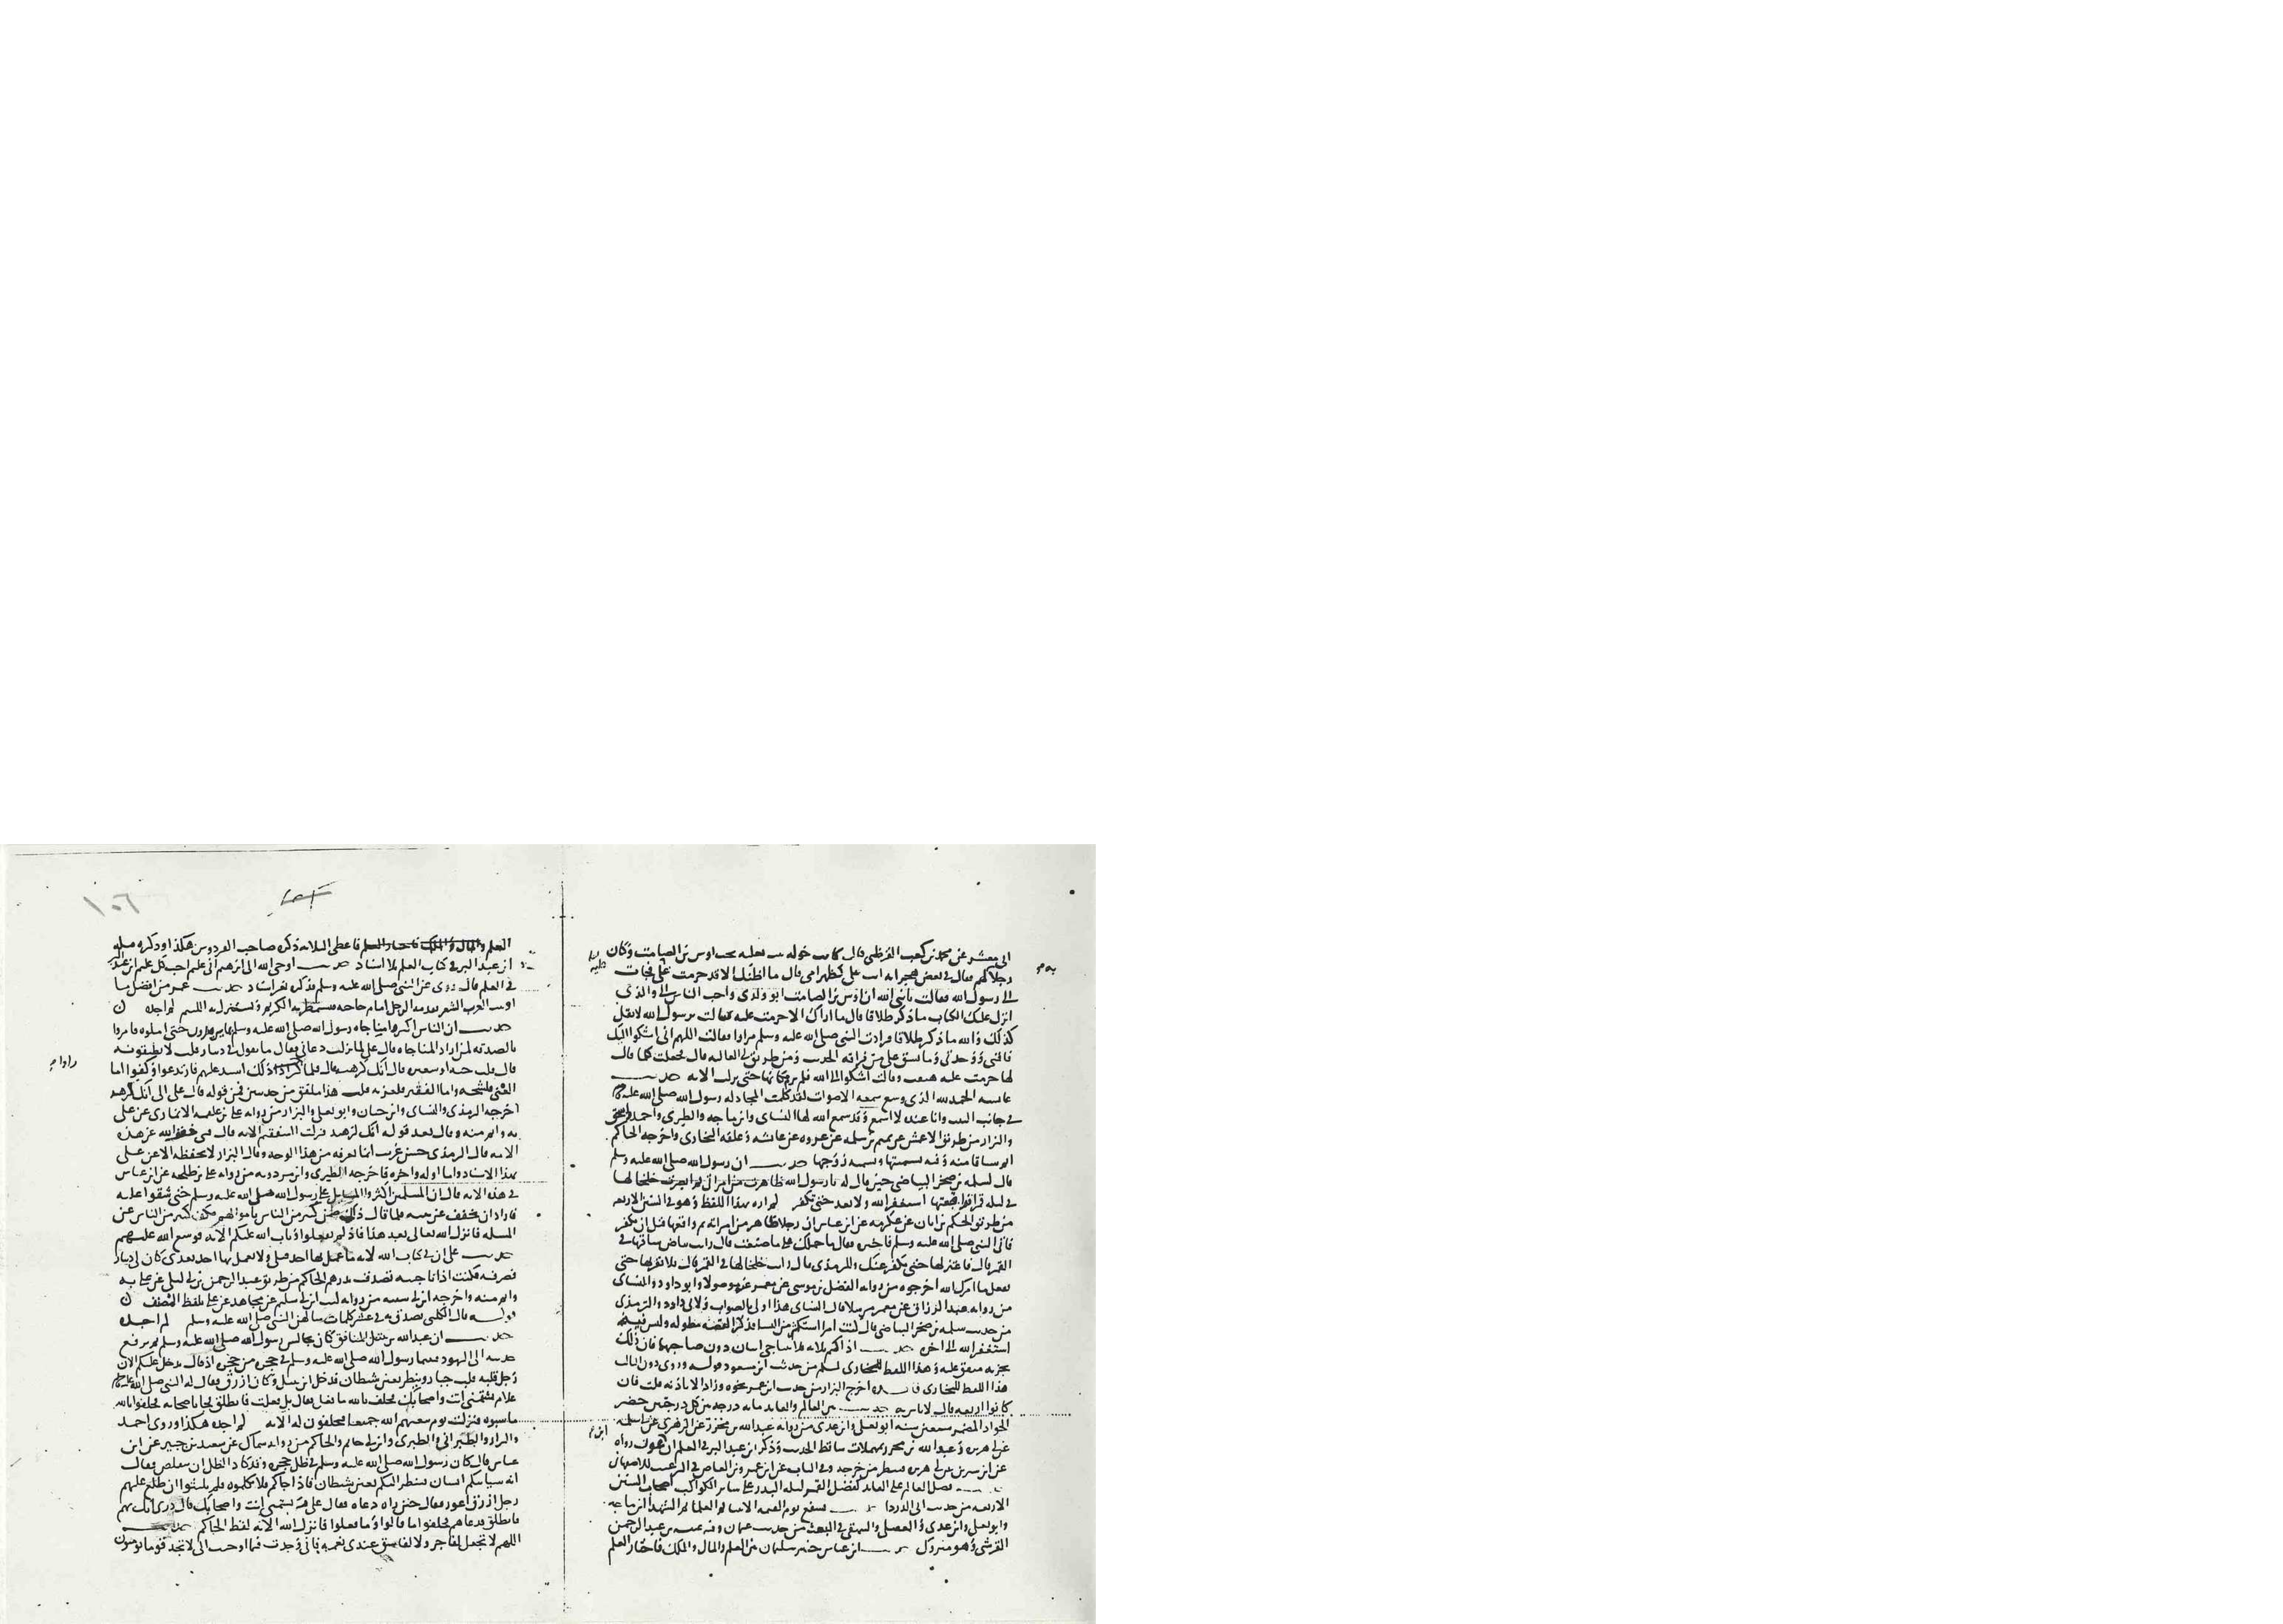 ابى معشر عن محمد بن كعب القرظى قال كانت خولة بنت ثعلبة تحت اوس بن الصامت وكان
رجلا فقال فى بعض هجراته انت على كظهر امى قال ما اظنك الا قد حرمت على فجات
الى رسول الله فقالت يا نبى الله ان اوس بن الصامت ابو ولدى واحب الناس الى والذى
انزل عليك الكتاب ما ذكر طلاقا قال ما اراك الا حرمت عليه فقالت يرسول الله لا تقل
كذلك والله ما ذكر طلاقا فرادت النبى صلى الله عليه وسلم مرارا فقالت اللهم انى اشكوا اليك
فاقتى ووحدتى وما يشق على من فراقه الحديث ومن طريق ابى العالية قال فجعلت كلما قال
لها حرمت عليه هتفت وقالت اشكوا الى الله فلم ترم مكانها حتى نزلت الاية حديث
عايشة الحمد لله الذى وسع سمعه الاصوات لقد كلمت المجادلة رسول الله صلى الله عليه وسلم
فى جانب البيت وانا عنده لا اسمع وقد سمع الله لها النساى وابن ماجه والطبرى واحمد واسحق
والبزار من طريق الاعمش عن تميم بن سلمة عن عروة عن عائشة وعلقه البخارى واخرجه الحاكم
اتم سياقا منه وفيه تسميتها وتسمية زوجها حديث ان رسول الله صلى الله عليه وسلم
قال لسلمة بن صخر البياضى حين قال له يا رسول الله ظاهرت من امراتى ثم ابصرت خلخالها
فى ليلة قمرا فواقعتها استغفر الله ولا تعد حتى تكفر لم اره بهذا اللفظ وهو فى السنن الاربعة
من طريق الحكم بن ابان عن عكرمة عن ابن عباس ان رجلا ظاهر من امراته ثم واقعها قبل ان يكفر
فاتى النبى صلى الله عليه وسلم فاخبره فقال ما حملك على ما صنعت قال رايت بياض ساقها فى
القمر قال فاعتزلها حتى تكفر عنك وللترمذى قال رايت خلخالها فى القمر قال فلا تقربها حتى
تفعل ما امرك الله اخرجوه من رواية الفضل بن موسى عن معمر عنه موصولا وابو داود والنساى
من رواية عبد الرزاق عن معمر مرسلا قال النساى هذا اولى بالصواب ولابى داود والترمذى
من حديث سلمة بن صخر البياضى قال كنت امرا استكثر من النسا فذكر القصة مطولة وليس فيه
استغفر الله الى اخره حديث اذا كنتم ثلاثة فلا يتناجى اثنان دون صاحبهما فان ذلك
يحزنه متفق عليه وهذا اللفظ للبخارى لمسلم من حديث ابن مسعود قوله وروى دون الثالث
هذا اللفظ للبخارى اخرج البزار من حديث ابن عمر نحوه وزاد الا باذنه قلت فان
كانوا اربعة قال لا باس به حديث بين العالم والعابد ماية درجة بين كل درجتين حضر
الجواد المضمر سبعين سنة ابو يعلى وابن عدى من رواية عبد الله بن محرر عن الزهرى عن ابى سلمة
عن ابى هريرة وعبد الله بن محرر بمهملات ساقط الحديث وذكر ابن عبد البر فى العلم ان ابن عون رواه
عن ابن سيرين عن ابى هريرة فينظر من خرجه وفى الباب عن ابن عمرو بن العاص فى الترغيب للاصبهانى
حديث فضل العالم على العابد كفضل القمر ليلة البدر على ساير الكواكب اصحاب السنن
الاربعة من حديث ابى الدردا حديث يشفع يوم القيمة الانبيا ثم العلما ثم الشهدا ابن ماجه
وابو يعلى وابن عدى والعقيلى والبيهقى فى البعث من حديث عثمان وفيه عنبسة بن عبد الرحمن
القرشى وهو متروك حديث ابن عباس خير سليمان بين العلم والمال والملك فاختار العلم
العلم والمال والملك فاختار العلم فاعطى الثلاثة ذكره صاحب الفردوس هكذا وذكره مثله
ابن عبد البر فى كتاب العلم بلا اسناد حديث اوحى الله الى ابرهيم انى عليم احب كل عليم ابن عبد البر
فى العلم قال روى عن النبى صلى الله عليه وسلم فذكره بغير اسناد حديث عمر من افضل ما
اوتيت العرب الشعر يقدمه الرجل امام حاجته فيستمطر به الكريم ويستنزل به اللئيم لم اجده
حديث ان الناس اكثروا مناجاة رسول الله صلى الله عليه وسلم بما يريدون حتى املوه فامروا
بالصدقة لمن اراد المناجاة قال على لما نزلت دعانى فقال ما تقول فى دينار قلت لا يطيقونه
قال قلت حبة او شعيرة قال انك لزهيد قال فلما راوا ذلك اشتد عليهم فارتدعوا وكفوا اما
الغنى فلشحه واما الفقير فلعزته قلت هذا ملفق من حديثين فمن قوله قال على الى انك لزهيد
اخرجه الترمذى والنساى وابن حبان وابو يعلى والبزار من رواية على بن علقمة الانمارى عن على
به واتم منه وقال بعد قوله انك لزهيد فنزلت ااشفقتم الاية قال فبى خفف الله عن هذه
الامة قال الترمذى حسن غريب انما نعرفه من هذا الوجه وقال البزار لا نحفظه الا عن على
بهذا الاسناد واما اوله واخره فاخرجه الطبرى وابن مردويه من رواية على بن طلحة عن ابن عباس
فى هذه الاية قال ان المسلمين اكثروا المسايل على رسول الله صلى الله عليه وسلم حتى شقوا عليه
فاراد ان يخفف عن نبيه فلما قال ذلك ضن كثير من الناس باموالهم فكف كثير من الناس عن
المسلة فانزل الله تعالى بعد هذا فاذ لم تفعلوا وتاب الله عليكم الاية فوسع الله عليهم
حديث على ان فى كتاب الله لاية ما عمل بها احد قبلى ولا يعمل بها احد بعدى كان لى دينار
فصرفته فكنت اذا ناجيته تصدقت بدرهم الحاكم من طريق عبد الرحمن بن ابى ليلى عن على به
واتم منه واخرجه ابن ابى شيبة من رواية ليث ابن ابى سليم عن مجاهد عن على بلفظ المصنف
قوله قال الكلبى تصدق به فى عشر كلمات سالهن النبى صلى الله عليه وسلم لم اجده
حديث ان عبد الله بن نبتل المنافق كان يجالس رسول الله صلى الله عليه وسلم ثم يرفع
حديثه الى اليهود فبينما رسول الله صلى الله عليه وسلم فى حجرة من حجره اذ قال يدخل عليكم الان
رجل قلبه قلب جبار وينظر بعين شيطان فدخل ابن نبتل وكان ازرق فقال له النبى صلى الله عليه وسلم
علام تشتمنى انت واصحابك فحلف بالله ما فعل فقال بل فعلت فانطلق فجا باصحابه فحلفوا بالله
ما سبوه فنزلت يوم يبعثهم الله جميعا فيحلفون له الاية لم اجده هكذا وروى احمد
والبزار والطبرانى والطبرى وابن ابى حاتم والحاكم من رواية سماك عن سعيد بن جبير عن ابن
عباس قال كان رسول الله صلى الله عليه وسلم فى ظل حجرة وقد كاد الظل ان يتقلص فقال
انه سياتيكم انسان فينظر اليكم بعين شيطان فاذا جاكم فلا تكلموه فلم يلبثوا ان طلع عليهم
رجل ازرق اعور فقال حين راه دعاه فقال على م تشتمنى انت واصحابك قال ذرنى اتك بهم
فانطلق فدعاهم فحلفوا ما قالوا وما فعلوا فانزل الله الاية لفظ الحاكم حديث
اللهم لا تجعل لفاجر ولا لفاسق عندى نعمة فانى وجدت فيما اوحيت الى لا تجد قوما يومنون